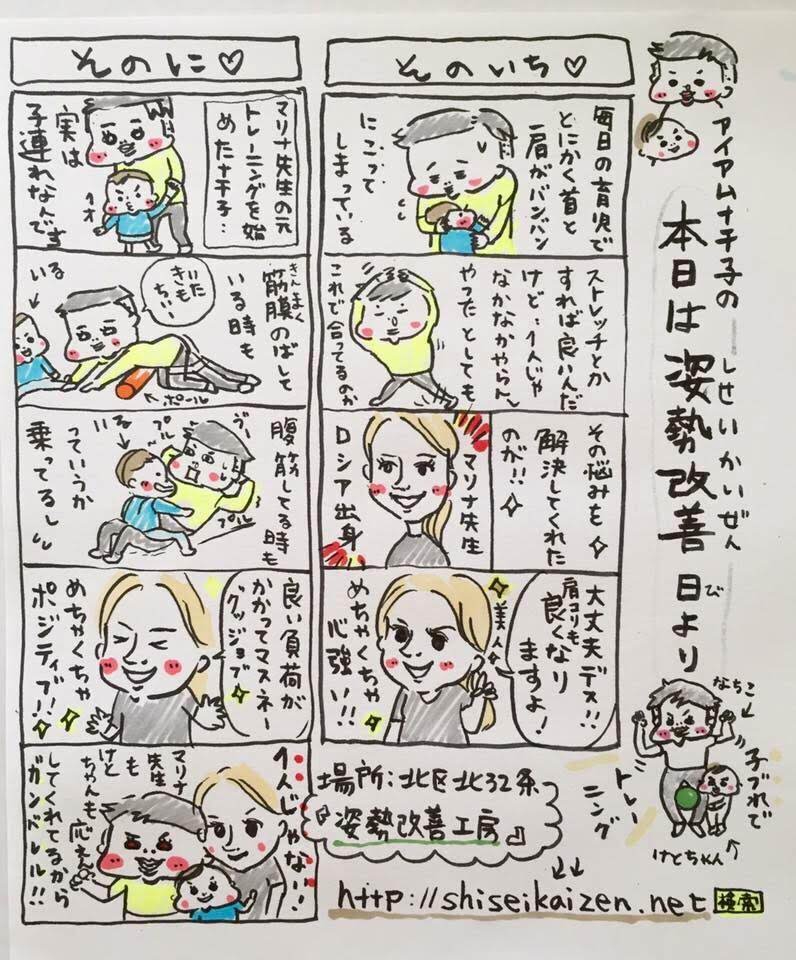 アイアムナチ子の
本日は姿勢改善日より
しせいかいぜん
び
なちこ
子づれで
トレー
ニング
けとちゃん
そのいち♡
毎日の育児で
とにかく首と
肩がバンバン
にこって
しまっている
ストレッチとか
すれば良いんだ
けど…1人じゃ
なかなかやらん
やったとしても
これで合ってるのか
その悩みを
解決してくれた
のが!!
マリナ先生
ロシア出身
大丈夫デス!!
肩コリも
良くなり
ますよ!
美人
めちゃくちゃ
心強い!!
場所:北区北32条
『姿勢改善工房』
http://shiseikaizen.net 検索
そのに♡
マリナ先生の元
トレーニングを始
めたナチ子…
実は
子連れなんです
きんまく
筋膜のばして
いる時も
いた
きも
ちぃ
いる
ポール
腹筋してる時も
いる
っていうか
乗ってるし
プル
プル
良い負荷が
かかってマスネー
グッジョブ
めちゃくちゃ
ポジティブ!!
1人じゃない!
マリナ
先生
も
けと
ちゃんも
応えん
してくれてるから
ガンバレル!!